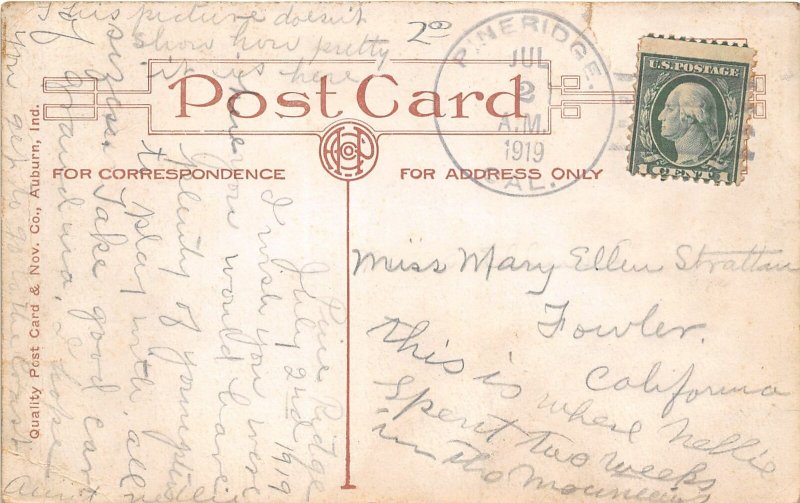 This picture doesn't
show how pretty
it is here
2⁰⁰
PINERIDGE.
JUL
2
A.M.
1919
CAL.
U.S. POSTAGE
1 CENT 1
Post Card
FOR CORRESPONDENCE
FOR ADDRESS ONLY
Quality Post Card & Nov. Co., Auburn, Ind.
Pine Ridge
July 2nd 1919
I wish you were
here you would have
plenty of youngsters
to play with, all
sizes. Take good care
of Grandma, I hope
you get to go to the coast
Aunt Nellie
Miss Mary Ellen Stratton
Fowler.
California
This is where Nellie
Spent two weeks
in the mountains